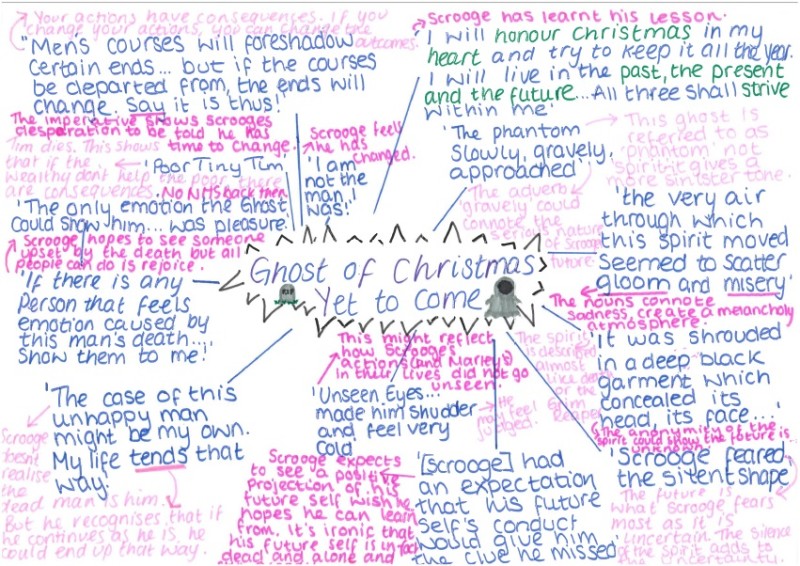 Your actions have consequences. If you
change your actions, you can change the
outcomes.
"Men's courses will foreshadow
certain ends... but if the courses
be departed from, the ends will
change. Say it is thus!"
The imperative shows Scrooges
desparation to be told he has
time to change.
Scrooge has learnt his lesson.
'I will honour Christmas in my
heart and try to keep it all the year.
I will live in the past, the present
and the future...All three shall strive
within me'
Tim dies. This shows
that if the
wealthy dont help the poor, there
are consequences. No NHS back then
'Poor Tiny Tim'
Scrooge feels
he has
changed.
'I am
not the
man I
was'
'The phantom
slowly, gravely,
approached'
This ghost is
referred to as
'phantom' not
spirit: it gives a
more sinister tone.
The adverb
'gravely' could
connote the
serious nature
of Scrooge's
future.
'The only emotion the Ghost
could show him... was pleasure.'
Scrooge hopes to see someone
upset by the death but all
people can do is rejoice.
'the very air
through which
this spirit moved
seemed to scatter
gloom and misery'
The nouns connote
sadness, create a melancholy
atmosphere.
Ghost of Christmas
Yet to Come
RIP
'If there is any
person that feels
emotion caused by
this man's death...
show them to me!'
This might reflect
how Scrooge's
actions (and Marley's)
in their lives did not go
unseen.
'Unseen Eyes...
made him shudder
and feel very
cold'
He
may feel
judged.
The spirit
is described
almost
like death
or the
Grim
Reaper
'It was shrouded
in a deep black
garment which
concealed its
head, its face...'
The anonymity of the
spirit could show the future is
unknown.
'The case of this
unhappy man
might be my own.
My life tends that
way.'
Scrooge
doesnt
realise
the
dead man is him.
But he recognises that if
he continues as he is, he
could end up that way.
Scrooge expects
to see a positive
projection of his
future self wish he
hopes he can learn
from. It's ironic that
his future self is in fact
dead and alone and
'[Scrooge] had
an expectation
that his future
self's conduct
would give him
the clue he missed'
'Scrooge feared
the silent shape'
The future is
what Scrooge fears
most as it is
uncertain. The silence
of the spirit adds to
the uncertainty.